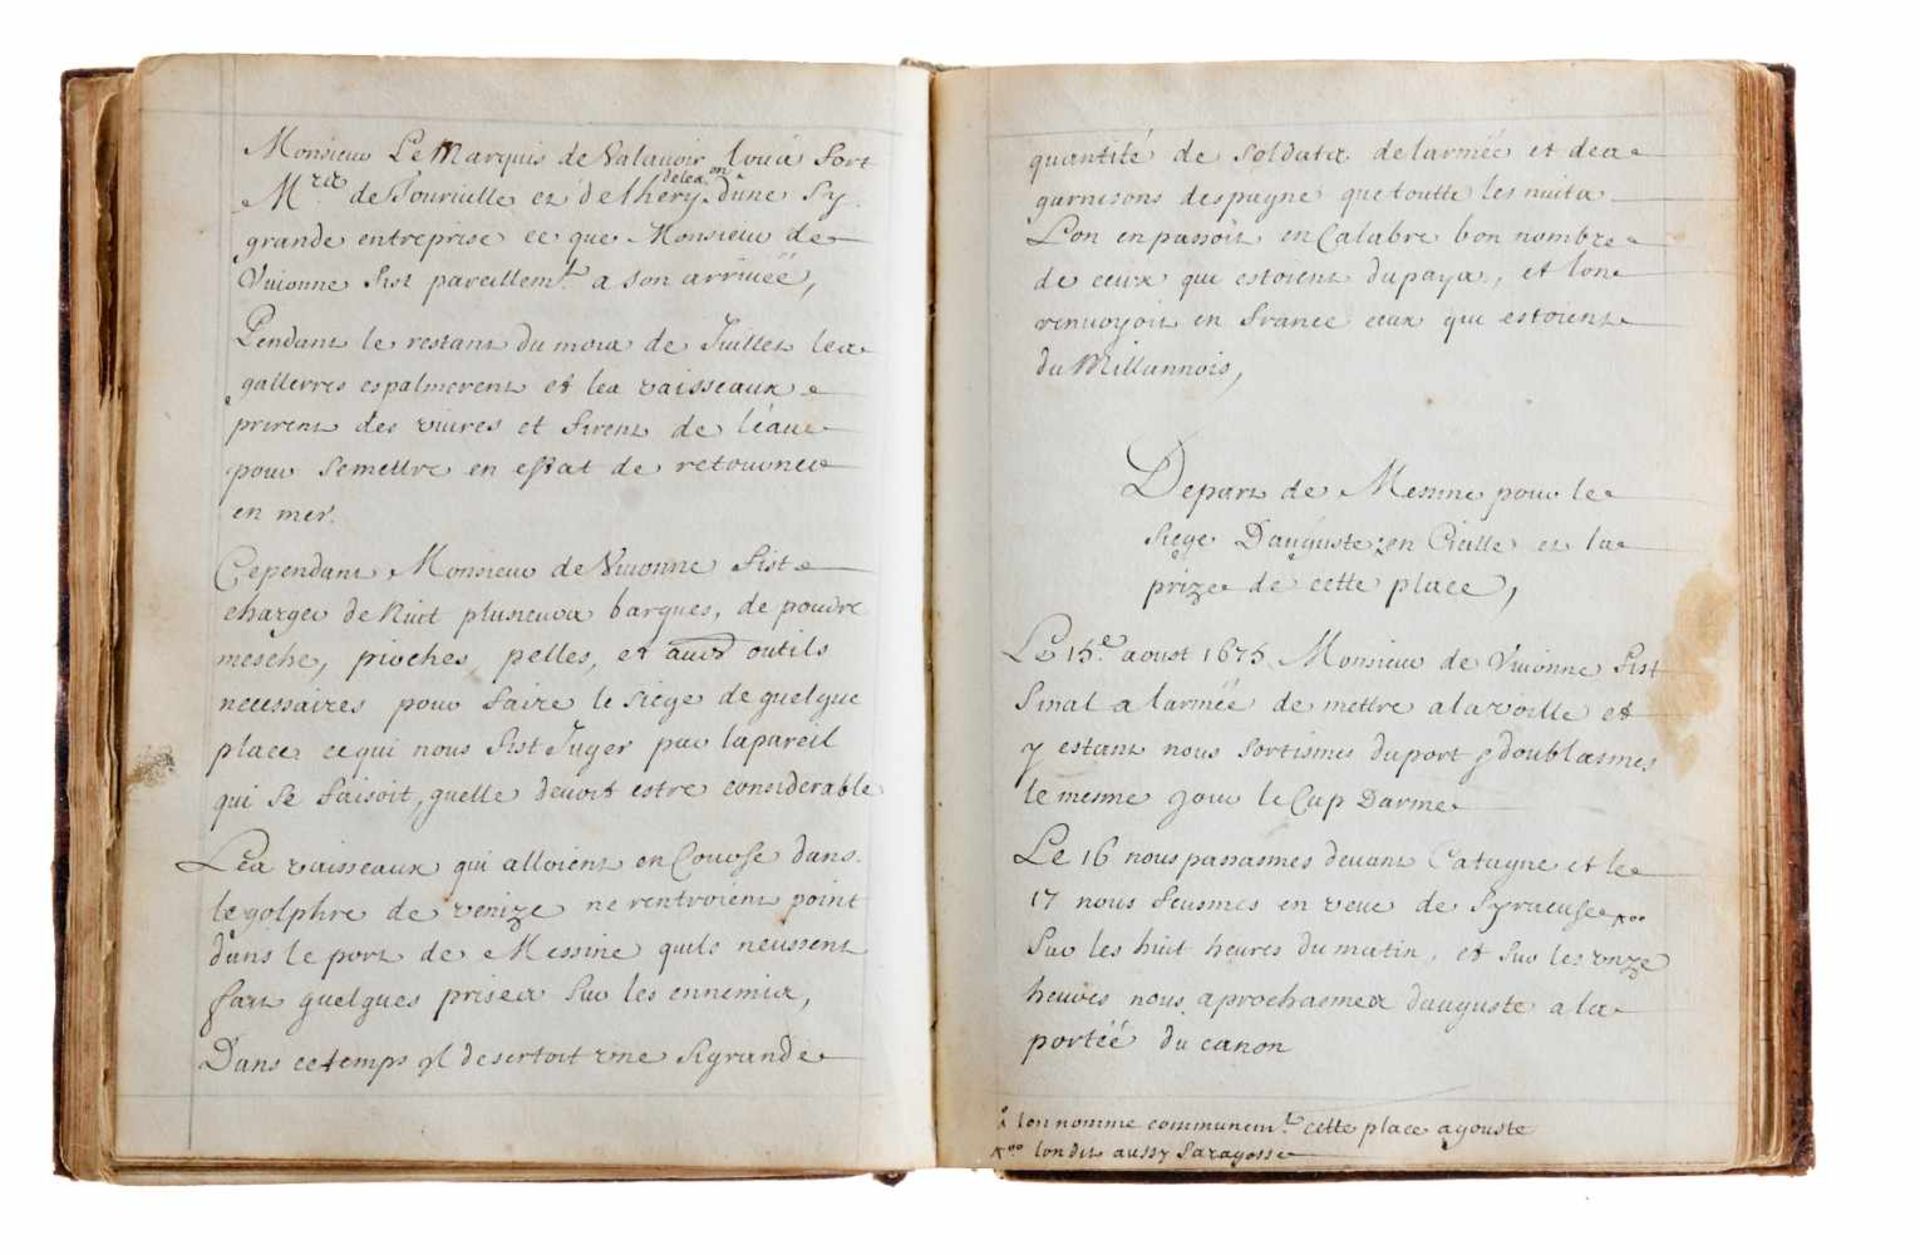 Monsieur Le Marquis de Valauoir loua fort
M.rs de Touruille et de lhery dune Sy
grande entreprise ce que Monsieur de
Viuonne fist pareillem.t a son arriuéé,
Pendant le restant du mois de Juillet les
gallerres espalmerent et les vaisseaux
prirent des viures et firent de léaue
pour Semettre en estat de retourner
en mer.
Cependant Monsieur de Viuonne fist
charger de Nuit plusieurs barques, de poudre
mesche, pioches, pelles, et autres outils
necessaires pour faire le siege de quelque
place ce qui nous fist Juger par lapareil
qui se faisoit, quelle deuoit estre considerable
Les vaisseaux qui alloient en Course dans
le golphre de venize ne rentroient point
dans le port de Messine quils neussent
fait quelques prises sur les ennemis,
Dans cetemps yl desertoit vne Sigrande
quantité de soldats delarméé et des
garnisons despagne que toutte les nuits
Lon en passoit en Calabre bon nombre
de ceux qui estoient dupays, et lon
renuoyoit en france ceux qui estoient
du Millannois,
Depart de Messine pour le
siege Dauguste en Cicille et la
prize de cette place,
Le 15.e aoust 1675 Monsieur de Viuonne fist
sinal a larméé de mettre alavoille et
y estant nous sortismes duport & doublasmes
le mesme Jour le Cap Darme
Le 16 nous passasmes deuant Catagne et le
17 nous feusmes en veue de Syracuse
Sur les huit heures du matin, et sur les vnze
heures nous aprochasmes dauguste a la
portéé du canon
lon nomme communem.t cette place agouste
lon dit aussy Saragosse